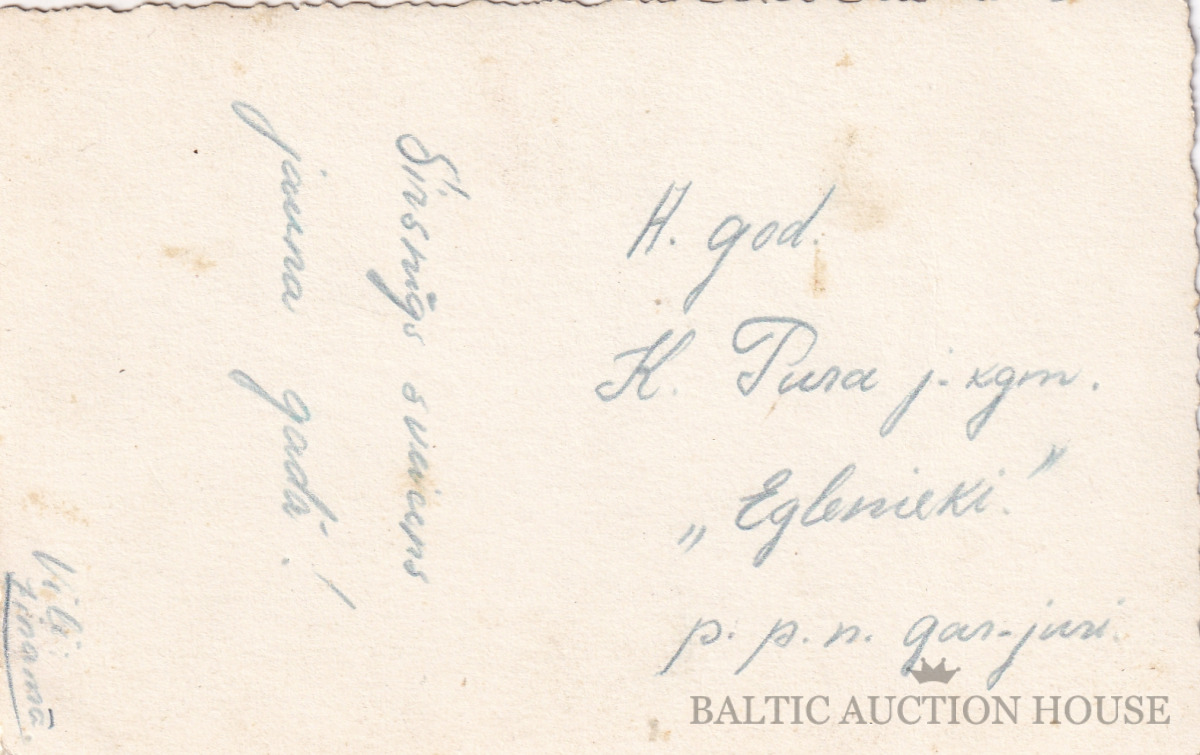 Sirsnīgs sveicens
jauna gadā!
H. god.
K. Pura j. kgm.
„Eglenieki"
p. p. n. gar-juri.
BALTIC AUCTION HOUSE